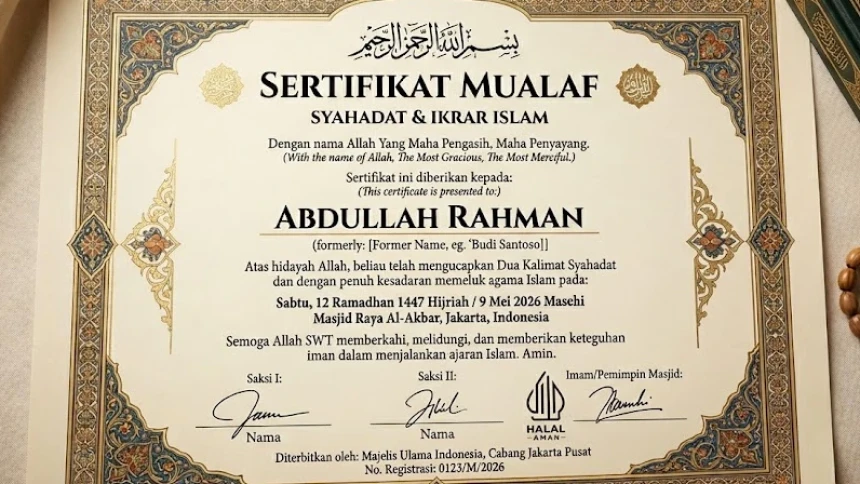 بِسْمِ اللهِ الرَّحْمٰنِ الرَّحِيْمِ
SERTIFIKAT MUALAF
SYAHADAT & IKRAR ISLAM
Dengan nama Allah Yang Maha Pengasih, Maha Penyayang.
(With the name of Allah, The Most Gracious, The Most Merciful.)
Sertifikat ini diberikan kepada:
(This certificate is presented to:)
ABDULLAH RAHMAN
(formerly: [Former Name, eg. ‘Budi Santoso]]
Atas hidayah Allah, beliau telah mengucapkan Dua Kalimat Syahadat
dan dengan penuh kesadaran memeluk agama Islam pada:
Sabtu, 12 Ramadhan 1447 Hijriah / 9 Mei 2026 Masehi
Masjid Raya Al-Akbar, Jakarta, Indonesia
Semoga Allah SWT memberkahi, melidungi, dan memberikan keteguhan
iman dalam menjalankan ajaran Islam. Amin.
Saksi I:
Saksi II:
Imam/Pemimpin Masjid:
Nama
Nama
HALAL
-AMAN-
Diterbitkan oleh: Majelis Ulama Indonesia, Cabang Jakarta Pusat
No. Registrasi: 0123/M/2026